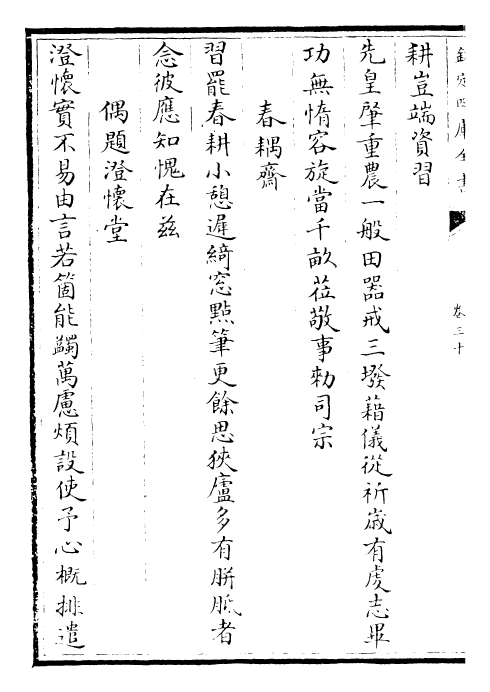 欽定四庫全書
卷三十
耕豈端資習
先皇肇重農一般田器戒三墢藉儀從祈歲有虔志畢
功無惰容旋當千畝莅敬事勅司宗
春耦齋
習罷春耕小憩遲綺窓㸃筆更餘思狹廬多有胼胝者
念彼應知愧在兹
偶題澄懷堂
澄懷實不易由言若箇能蠲萬慮煩設使予心概排遣